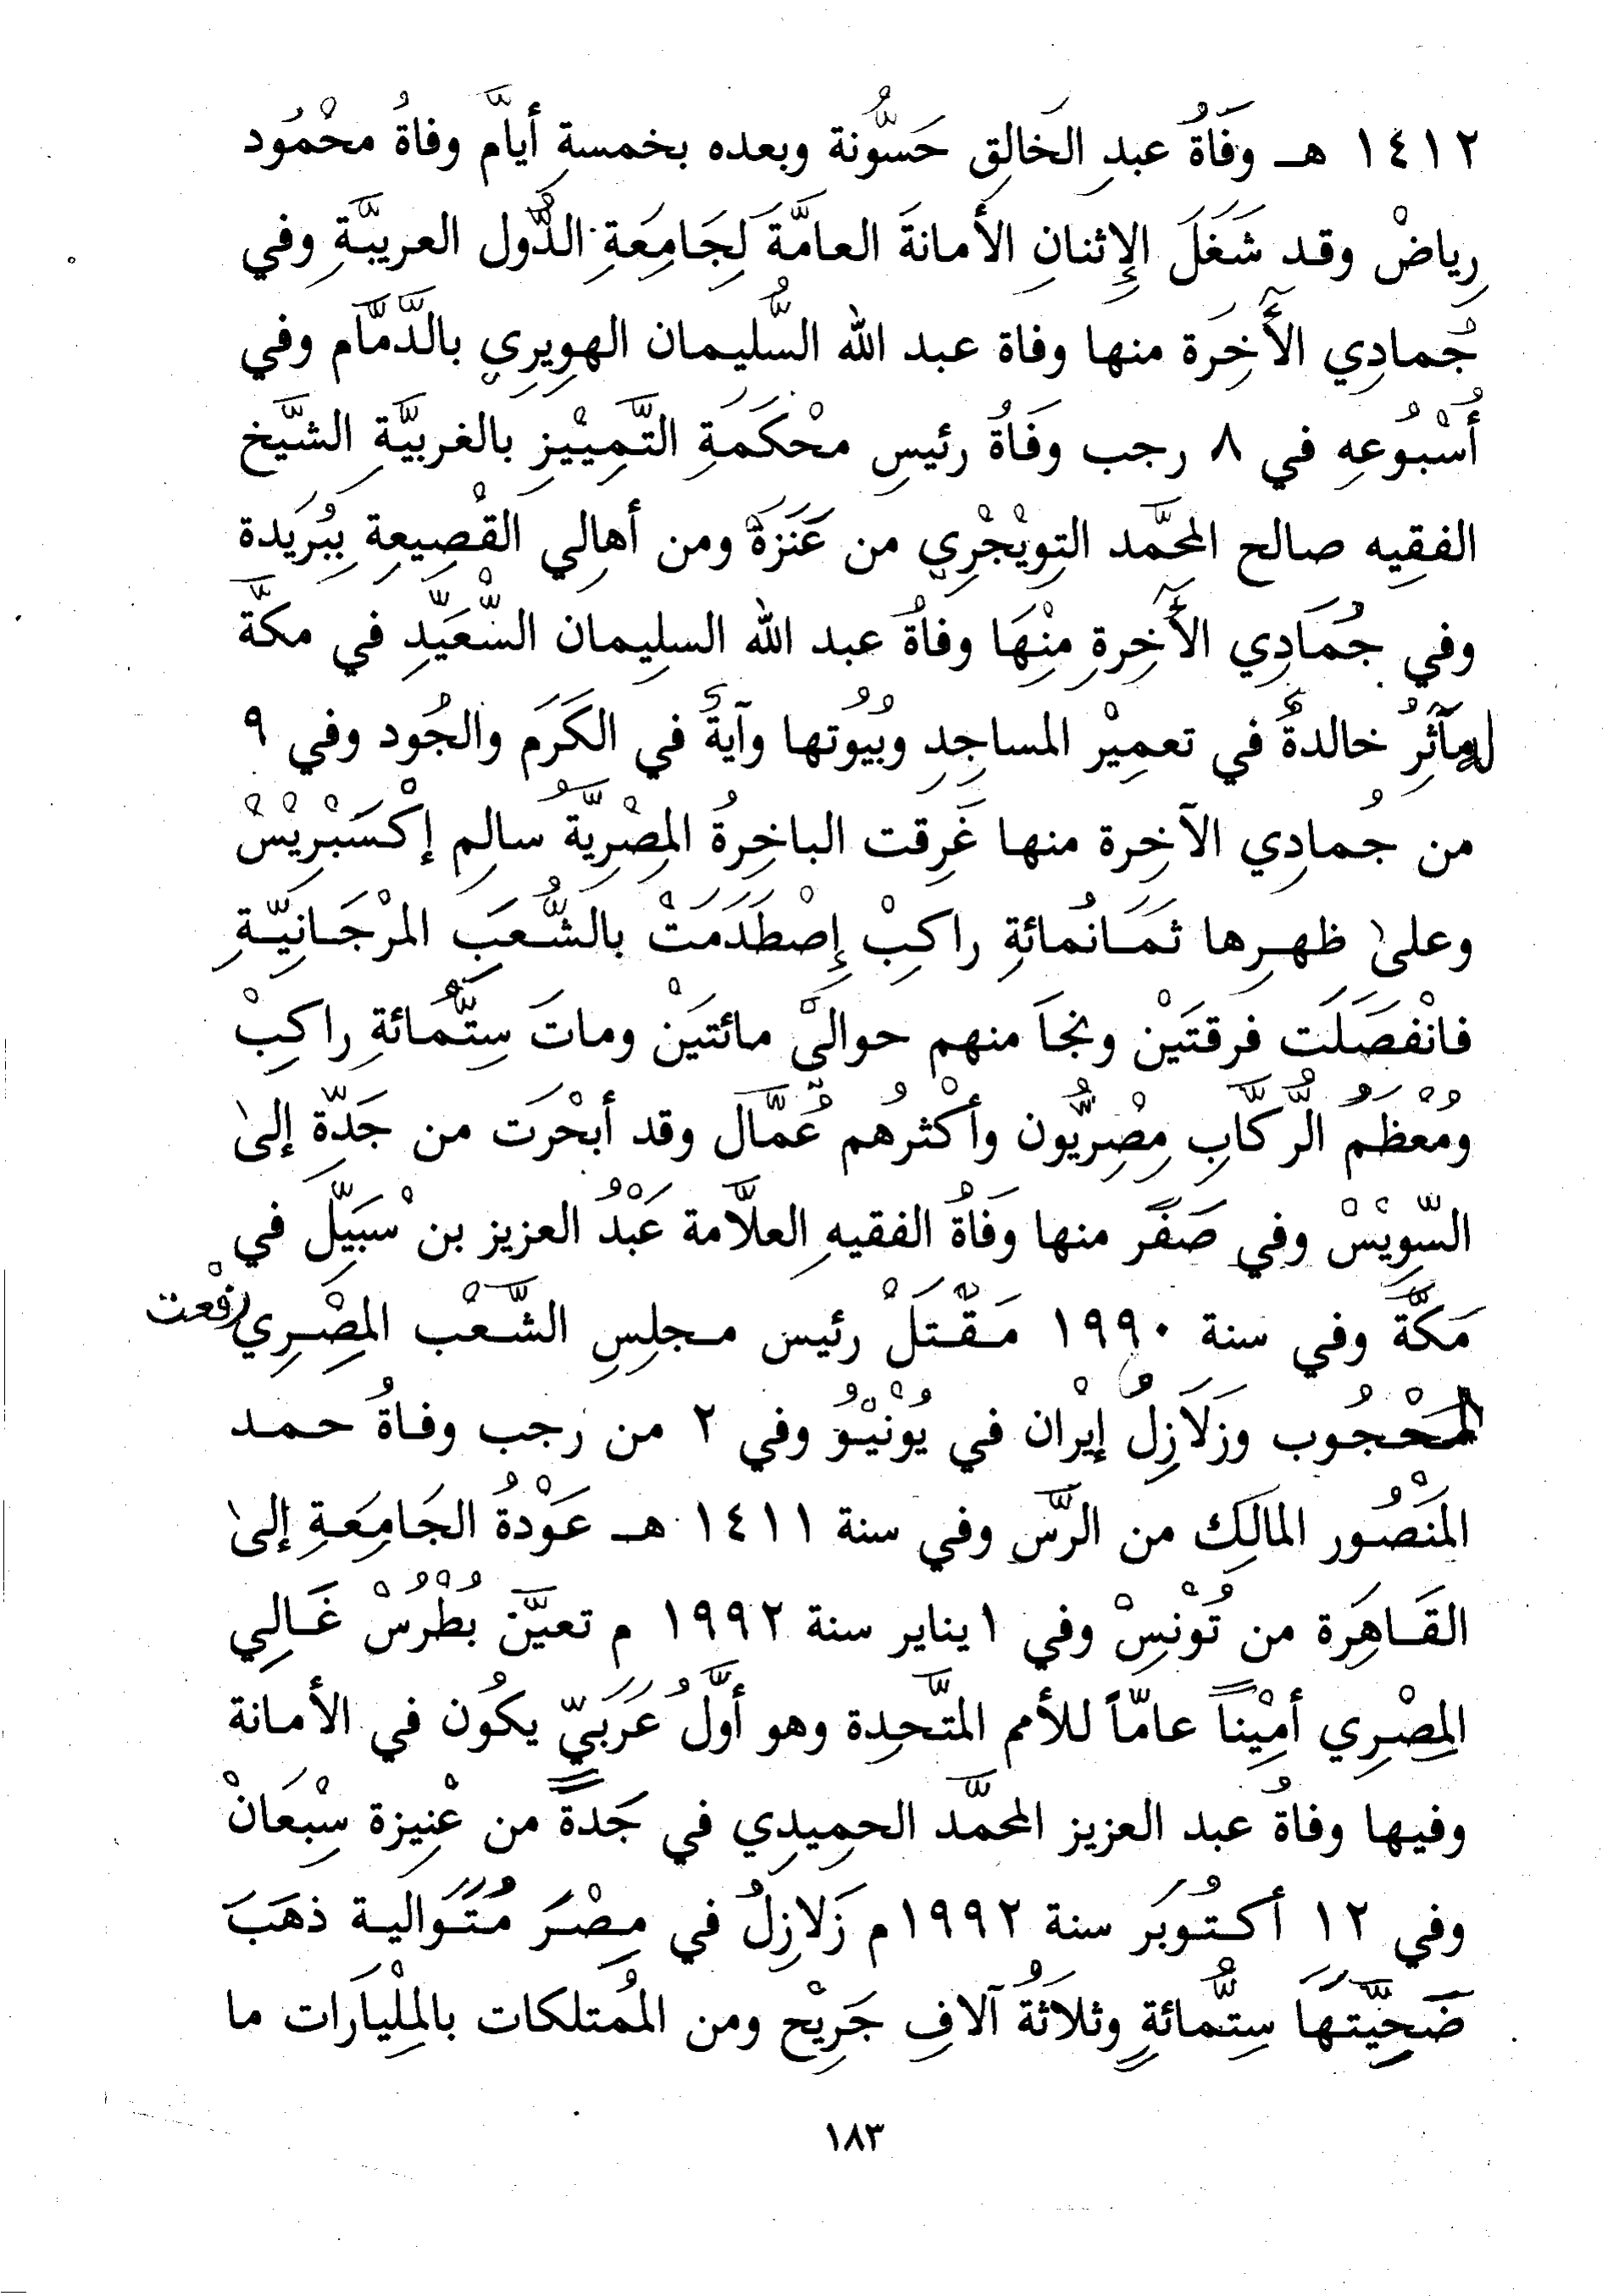 ١٤١٢ هـ وَفَاةُ عبدِ الخَالِق حَسُّونة وبعده بخمسةِ أيَّام وفاةُ محْمُود
رِياضْ وقد شَغَلَ الإِثنانِ الأمانةَ العامَّةَ لِجَامِعَةِ الدُّول العربيَّةِ وفي
جُمادِي الأَخِرَة منها وفاة عبد الله السُّليمان الهوِيرِي بالدَّمَّام وفي
أُسْبُوعِهِ في ٨ رجب وَفَاةُ رئيسِ محْكَمَةِ التَّمِيْيزِ بالغربيَّةِ الشيَّخ
الفقِيه صالح المحمَّد التوِيْجْرِي من عَنَزَةْ ومن أهالِي القْصِيعِة بِبُرَيدة
وفي جُمَادِي الأَخِرةِ مِنْهَا وفاةُ عبد الله السلِيمان السَّعَيِّدِ في مكَّة
له مآثِرُ خالدةٌ في تعمِيْر المساجِدِ وبُيُوتها وآيةٌ في الكَرَم والجُود وفي ٩
من جُمادِي الآخِرة منها غَرِقت الباخِرةُ المِصْرِيَّةُ سالِم إكْسَبْرِيْسْ
وعلىٰ ظهرِها ثَمَانُمائةِ راكِبْ إِصْطَدَمَتْ بالشُّعَبَ المرْجَانِيّةِ
فانْفصَلَت فرقتَيْن ونجَا منهم حواليْ مائتَيْن وماتَ سِتُّمائةِ راكِبْ
ومُعْظَمُ الرُّكَّابِ مِصْرِيُّون وأكْثرُهم عُمَّال وقد أبْحْرَت من جَدّة إلىٰ
السّويسْ وفي صَفَر منها وَفَاةُ الفقيهِ العلاَّمة عَبْدُ العزيز بن سْبَيِّل في
مَكَّةَ وفي سنة ١٩٩٠ مَقْتَلْ رئيس مجلِسِ الشَّعْب المِصْرِي رفْعت
المَحْجُوب وزَلَازِلُ إيْران في يُوْنْيُو وفي ٢ من رَجب وفاةُ حمد
المَنْصُور المالَكِ من الرَّس وفي سنة ١٤١١ هـ عَوْدةُ الجَامِعَةِ إلىٰ
القَاهِرَة من تُوْنِسْ وفي ١ يناير سنة ١٩٩٢ م تعيَّن بُطْرُسْ غَالِي
المِصْرِي أمِيْناً عامّاً للأمم المتَّحِدة وهو أوَّلُ عَرَبيّ يكُون في الأمانة
وفيها وفاةُ عبد العزيز المحمَّد الحمِيدِي في جَدةً من عْنِيزة سِبْعَانْ
وفي ١٢ أكتُوبَر سنة ١٩٩٢م زَلازِلُ في مِصْرَ مُتَوالية ذهَبَ
ضَحِيَّتهَا سِتُّمائةٍ وثلاثةُ آلافِ جَرِيْح ومن المُمتلكات بالمِلْيارَات ما
١٨٣